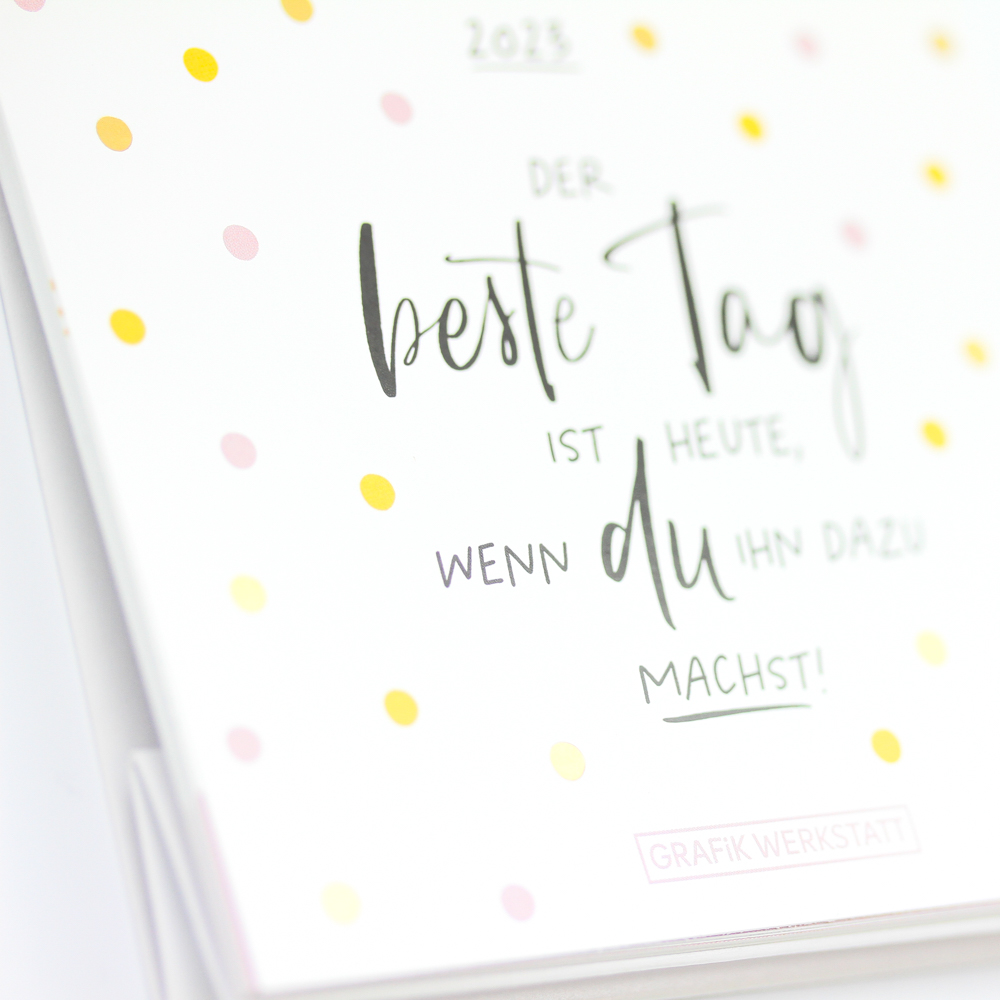 2023
DER
beste Tag
IST HEUTE,
WENN du IHN DAZU
MACHST!
GRAFiK WERKSTATT